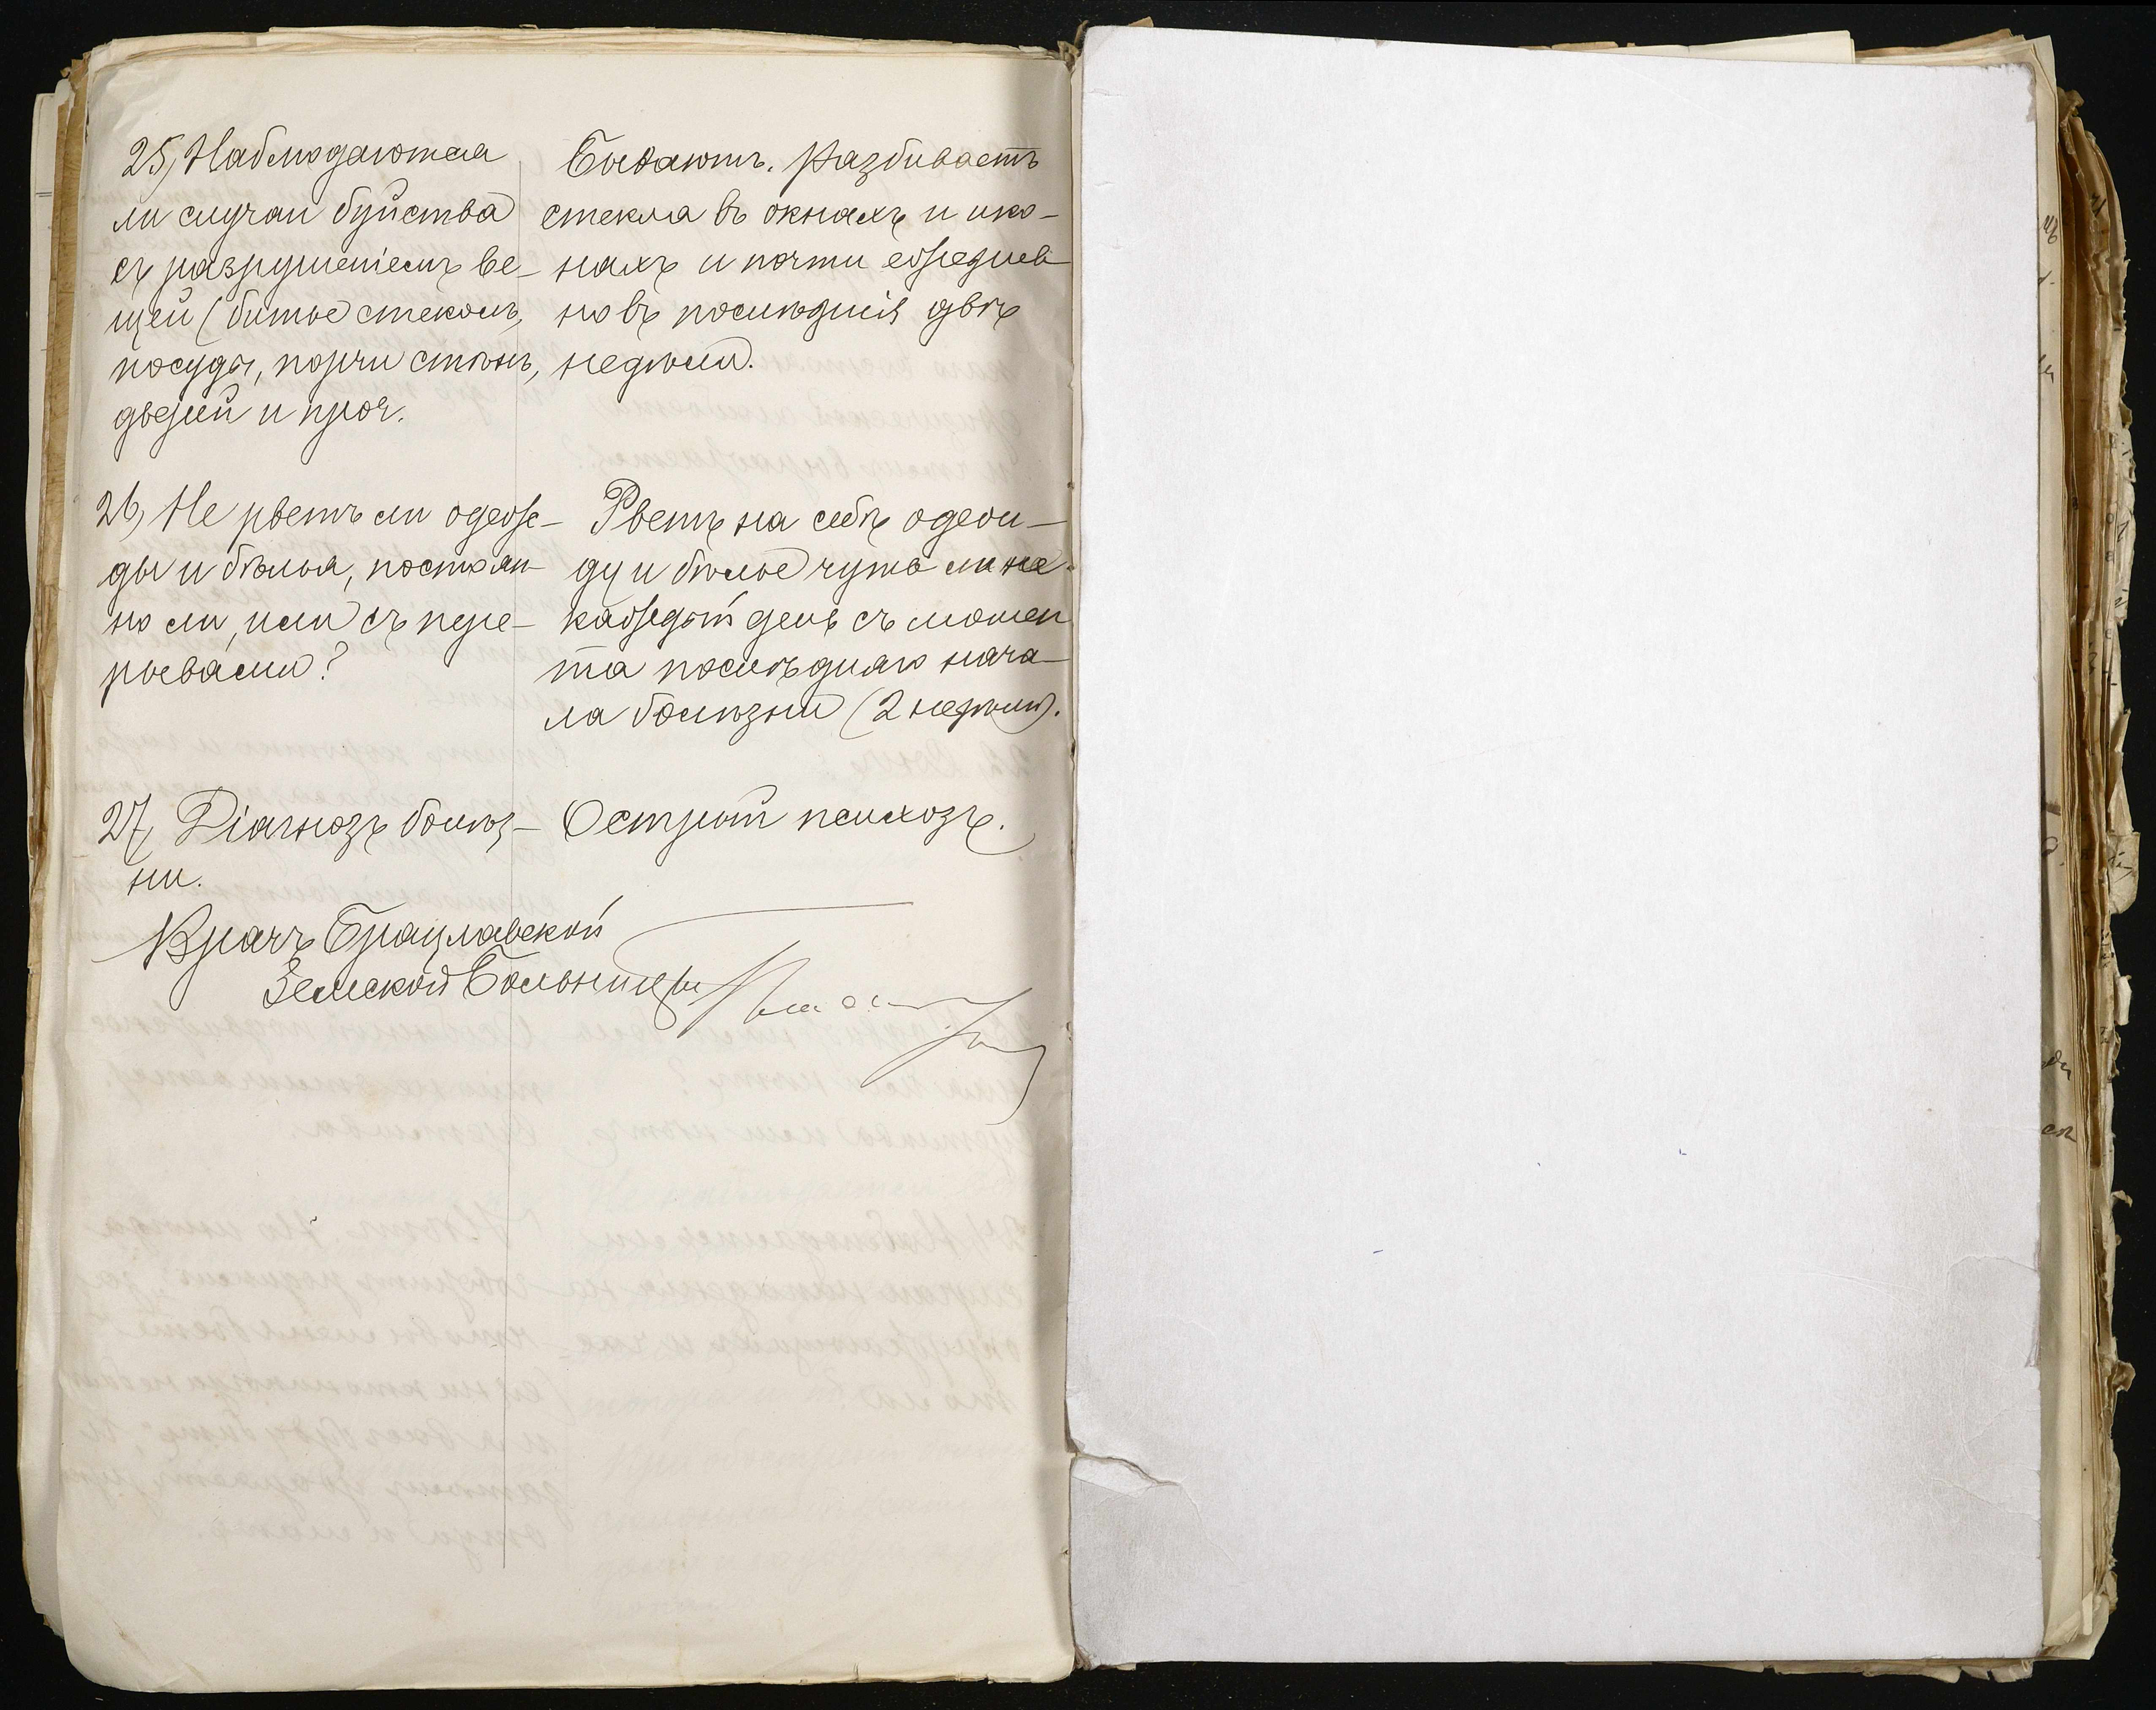 25, Наблюдаются
ли случаи буйства
съ разрушеніемъ ве-
щей (битье стеколъ,
посуды, порчи стѣнъ,
дверей и проч.
Бываютъ. Разбиваетъ
стекла въ окнахъ и ико-
нахъ и почти ежеднев
но въ послѣднія двѣ
недѣли.
26, Не рветъ ли одеж-
ды и бѣлья, постоян-
но ли, или съ пере-
рывами?
Рветъ на себѣ одеж-
ду и бѣлье чуть ли не
каждый день съ момен
та послѣдняго нача-
ла болѣзни (2 недѣли).
27, Діагнозъ болѣз-
ни.
Острый психозъ.
Врачъ Брацлавской
Земской Больницы